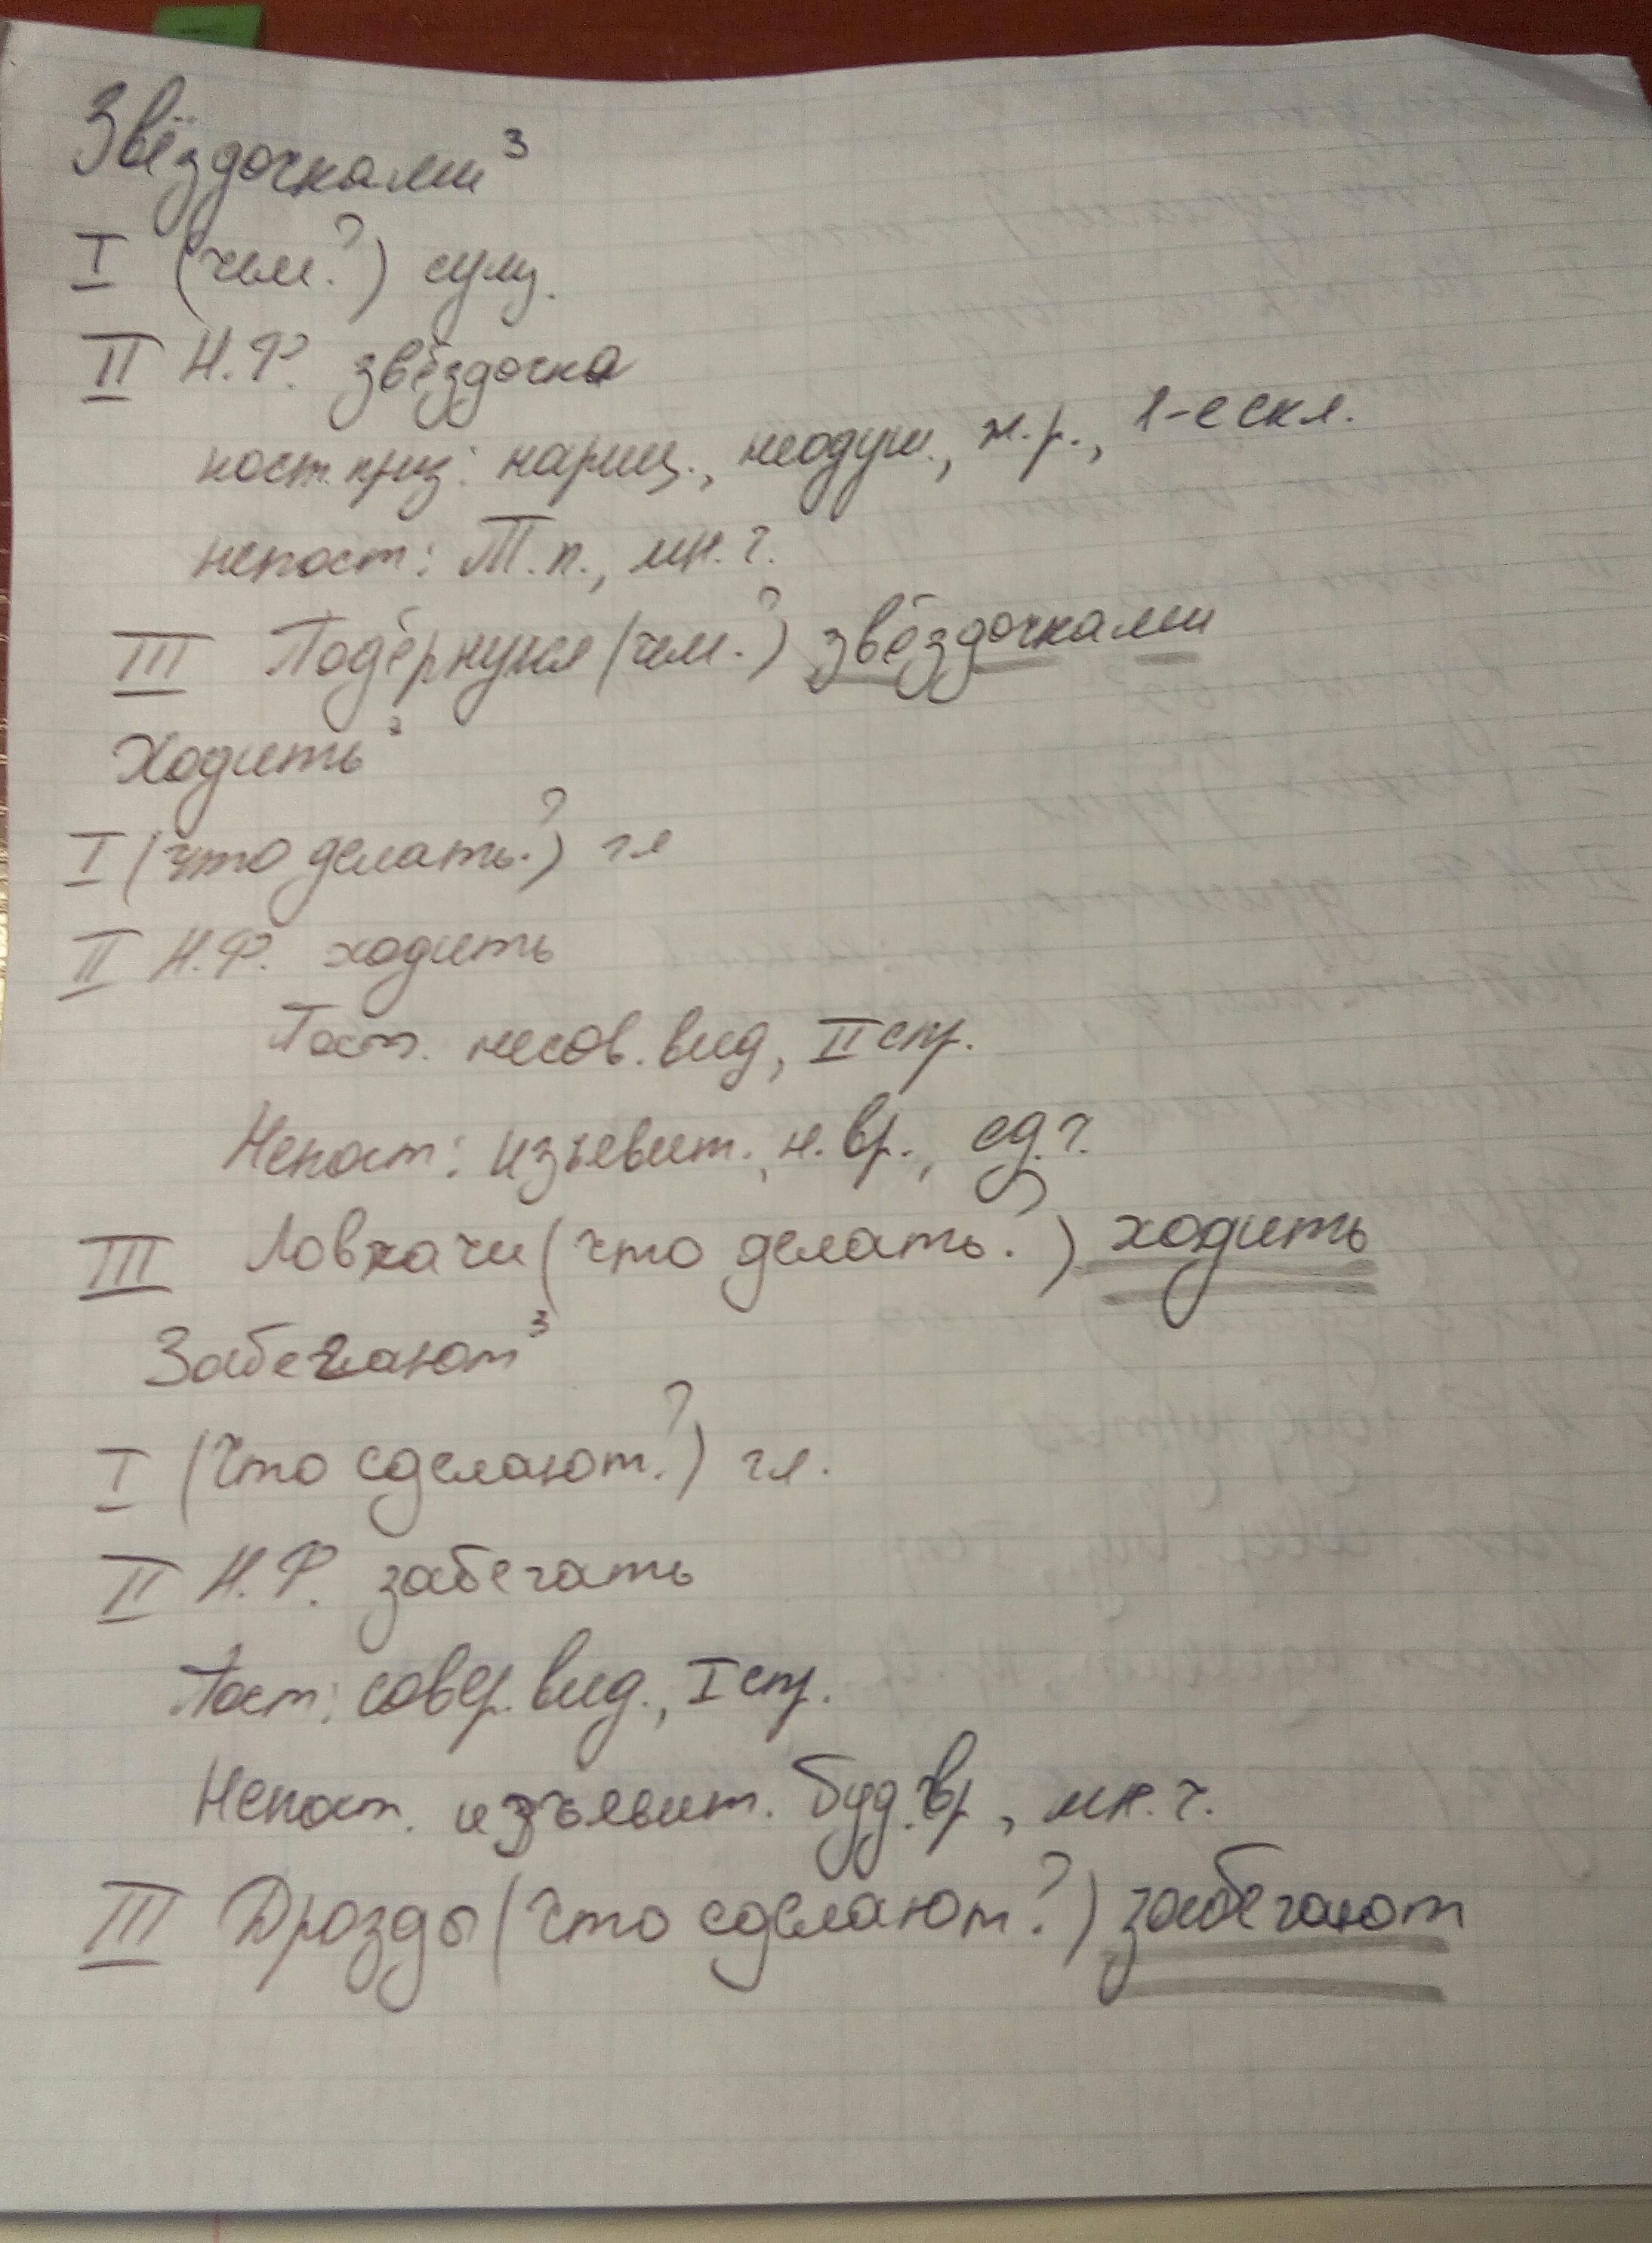 Звёздочками³
I (чем?) сущ.
II Н.Ф. звёздочка
пост. приз: нариц., неодуш., ж.р., 1-е скл.
непост: Т.п., мн.ч.
III Подёрнулся (чем?) звёздочками
Ходить³
I (что делать?) гл
II Н.Ф. ходить
Пост. несов. вид, II спр.
Непост: изъявит., н. вр., ед.ч.
III Ловкачи (что делать?) ходить
Забегают³
I (Что сделают?) гл.
II Н.Ф. забегать
Пост: совер. вид., I спр.
Непост. изъявит. буд. вр, мн.ч.
III Дрозды (что сделают?) забегают